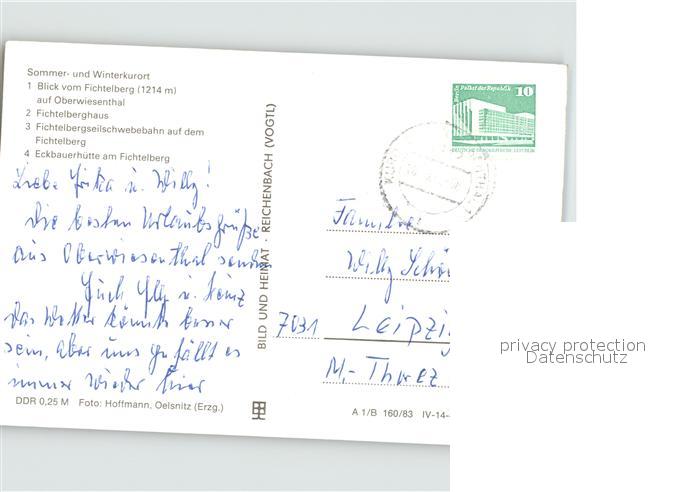 Sommer- und Winterkurort
1 Blick vom Fichtelberg (1214 m)
auf Oberwiesenthal
2 Fichtelberghaus
3 Fichtelbergseilschwebebahn auf dem
Fichtelberg
4 Eckbauerhütte am Fichtelberg
Liebe Erika u. Willy!
Die besten Urlaubsgrüße
aus Oberwiesenthal senden
Euch u. Heinz
Das Wetter könnte besser
sein, aber uns gefällt es
immer wieder hier
DDR 0,25 M Foto: Hoffmann, Oelsnitz (Erzg.)
BILD UND HEIMAT · REICHENBACH (VOGTL)
10
Palast der Republik
DEUTSCHE DEMOKRATISCHE REPUBLIK
Familie
Willy
7031 Leipzig
M.-Thorez
A 1/B 160/83 IV-14-
privacy protection
Datenschutz